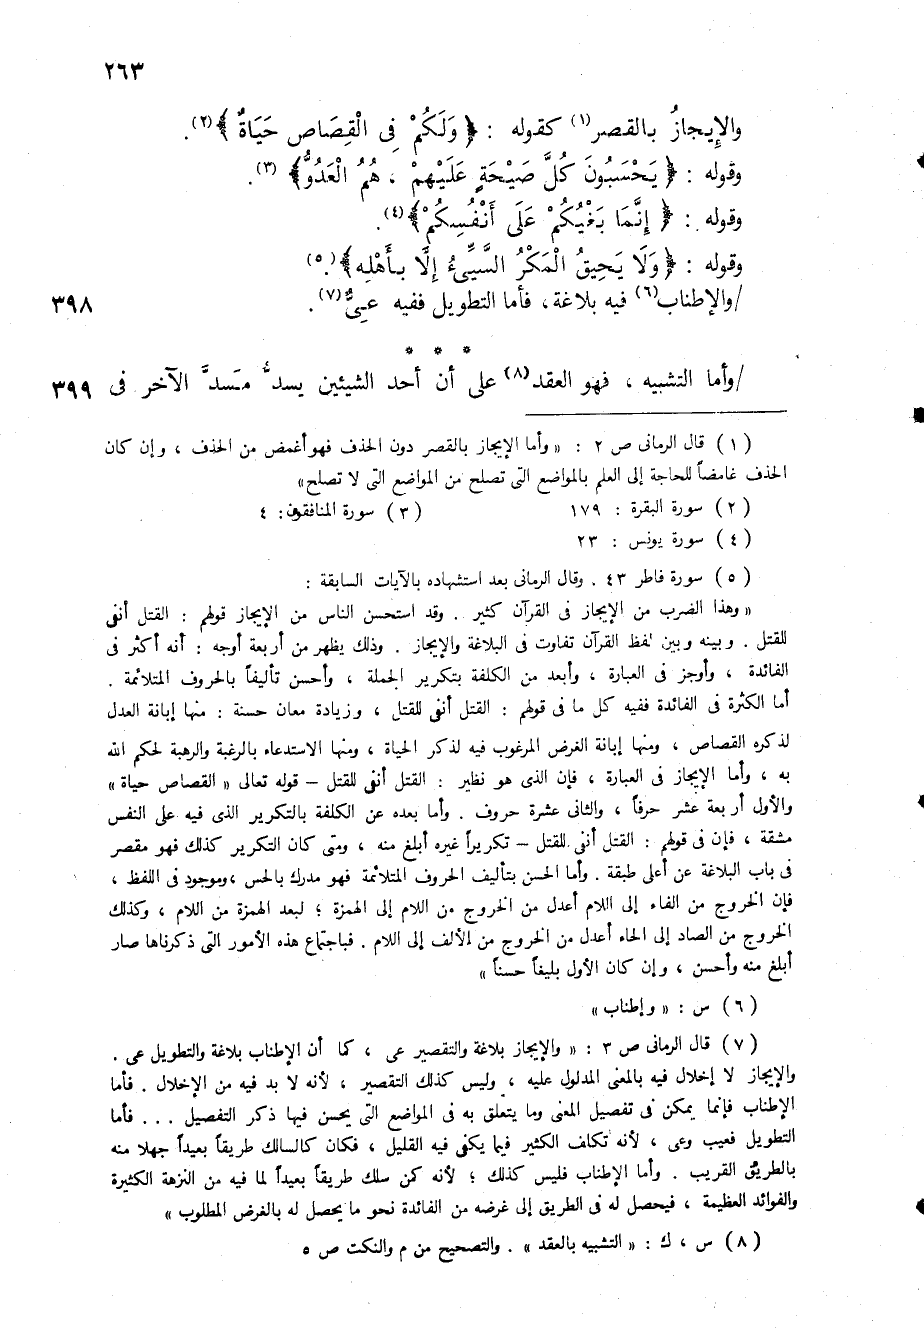 ٢٦٣
والإيجازُ بالقصر(١) كقوله : ﴿ وَلَكُمْ فِى الْقِصَاصِ حَيَاةٌ ﴾(٢).
وقوله : ﴿ يَحْسَبُونَ كُلَّ صَيْحَةٍ عَلَيْهِمْ ، هُمُ الْعَدُوُّ ﴾ (٣).
وقوله : ﴿ إِنَّمَا بَغْيُكُمْ عَلَى أَنْفُسِكُمْ ﴾(٤).
وقوله : ﴿ وَلَا يَحِيقُ الْمَكْرُ السَّيِّئُ إِلَّا بِأَهْلِهِ ﴾(٥).
/والإطناب(٦) فيه بلاغة، فأما التطويل ففيه عِىٌّ(٧). ٣٩٨
* * *
/وأما التشبيه ، فهو العقد(٨) على أن أحد الشيئين يسدُّ مَسدَّ الآخر فى ٣٩٩
(١) قال الرمانى ص ٢ : « وأما الإيجاز بالقصر دون الحذف فهو أغمض من الحذف ، وإن كان
الحذف غامضاً للحاجة إلى العلم بالمواضع التى تصلح من المواضع التى لا تصلح»
(٢) سورة البقرة : ١٧٩ (٣) سورة المنافقون: ٤
(٤) سورة يونس : ٢٣
(٥) سورة فاطر ٤٣ . وقال الرمانى بعد استشهاده بالآيات السابقة :
« وهذا الضرب من الإيجاز فى القرآن كثير . وقد استحسن الناس من الإيجاز قولهم : القتل أنفى
للقتل . وبينه وبين لفظ القرآن تفاوت فى البلاغة والإيجاز . وذلك يظهر من أربعة أوجه : أنه أكثر فى
الفائدة ، وأوجز فى العبارة ، وأبعد من الكلفة بتكرير الجملة ، وأحسن تأليفاً بالحروف المتلائمة .
أما الكثرة فى الفائدة ففيه كل ما فى قولهم : القتل أنفى للقتل ، وزيادة معان حسنة : منها إبانة العدل
لذكره القصاص ، ومنها إبانة الغرض المرغوب فيه لذكر الحياة ، ومنها الاستدعاء بالرغبة والرهبة لحكم الله
به ، وأما الإيجاز فى العبارة ، فإن الذى هو نظير : القتل أنفى للقتل – قوله تعالى « القصاص حياة »
والأول أربعة عشر حرفاً ، والثانى عشرة حروف . وأما بعده عن الكلفة بالتكرير الذى فيه على النفس
مشقة ، فإن فى قولهم : القتل أنفى للقتل – تكريراً غيره أبلغ منه ، ومتى كان التكرير كذلك فهو مقصر
فى باب البلاغة عن أعلى طبقة . وأما الحسن بتأليف الحروف المتلائمة فهو مدرك بالحس ،وموجود فى اللفظ ،
فإن الخروج من الفاء إلى اللام أعدل من الخروج من اللام إلى الهمزة ؛ لبعد الهمزة من اللام ، وكذلك
الخروج من الصاد إلى الحاء أعدل من الخروج من الألف إلى اللام . فباجتماع هذه الأمور التى ذكرناها صار
أبلغ منه وأحسن ، وإن كان الأول بليغاً حسناً »
(٦) س : « وإطناب »
(٧) قال الرمانى ص ٣ : « والإيجاز بلاغة والتقصير عى ، كما أن الإطناب بلاغة والتطويل عى .
والإيجاز لا إخلال فيه بالمعنى المدلول عليه ، وليس كذلك التقصير ، لأنه لا بد فيه من الإخلال . فأما
الإطناب فإنما يمكن فى تفصيل المعنى وما يتعلق به فى المواضع التى يحسن فيها ذكر التفصيل ... فأما
التطويل فعيب وعى ، لأنه تكلف الكثير فيما يكفى فيه القليل ، فكان كالسالك طريقاً بعيداً جهلا منه
بالطريق القريب . وأما الإطناب فليس كذلك ؛ لأنه كمن سلك طريقاً بعيداً لما فيه من النزهة الكثيرة
والفوائد العظيمة ، فيحصل له فى الطريق إلى غرضه من الفائدة نحو ما يحصل له بالغرض المطلوب »
(٨) س ، ك : « التشبيه بالعقد » . والتصحيح من م والنكت ص ٥